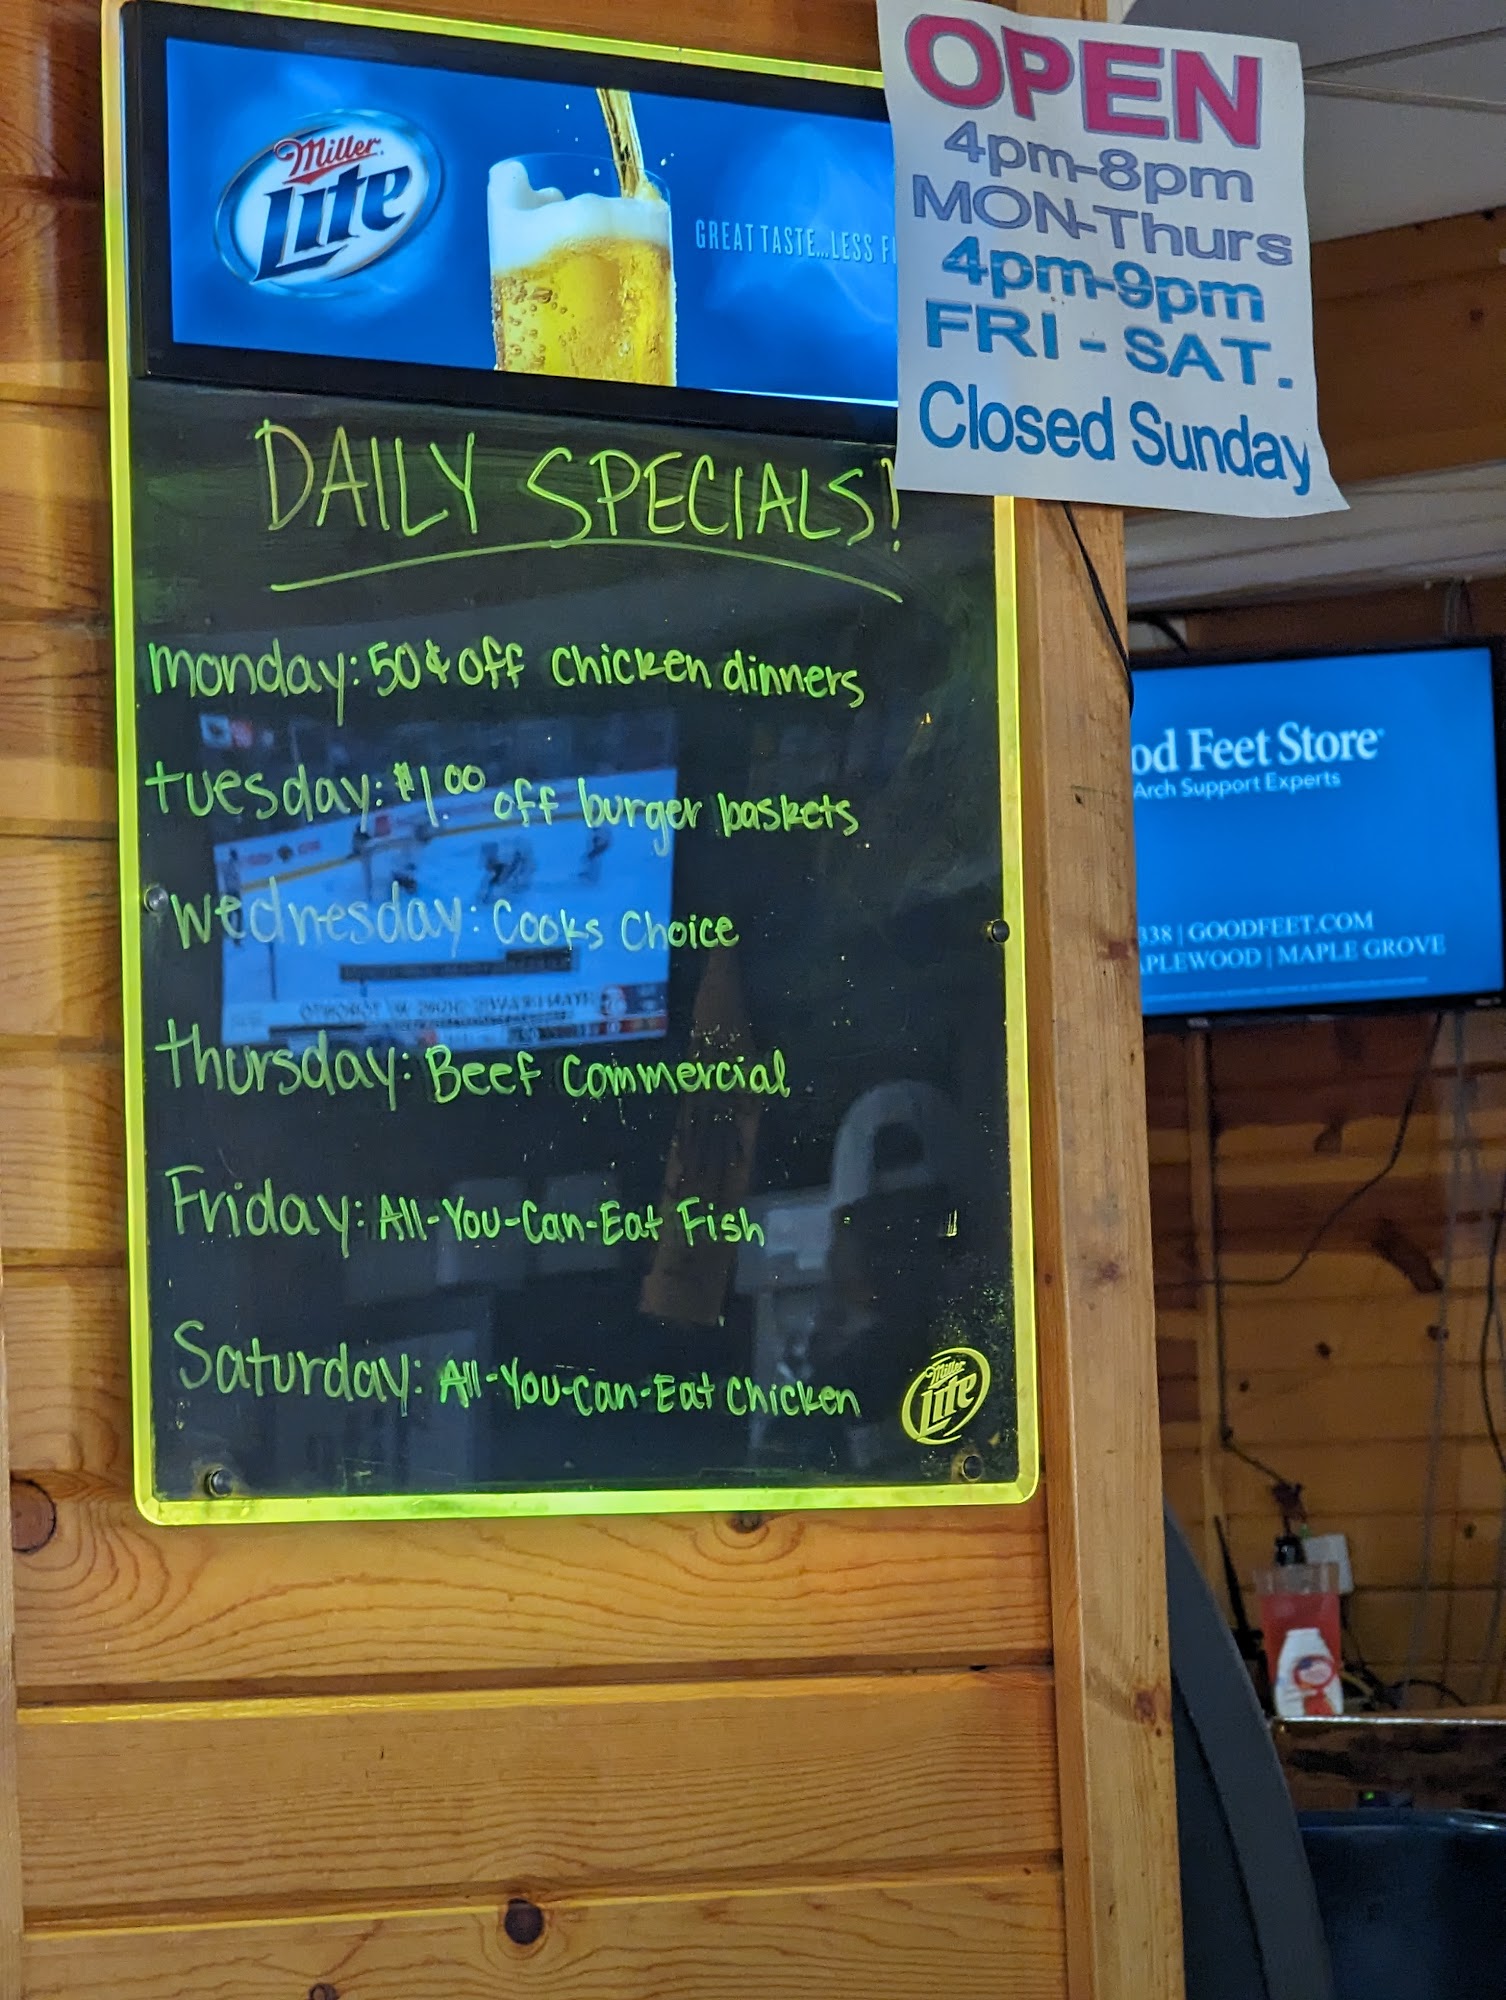 Miller
Lite
GREAT TASTE...LESS
OPEN
4pm-8pm
MON-Thurs
4pm-9pm
FRI - SAT.
Closed Sunday
DAILY SPECIALS!
monday: 50¢ off chicken dinners
tuesday: $1.00 off burger baskets
wednesday: Cooks Choice
thursday: Beef Commercial
Friday: All-You-Can-Eat Fish
Saturday: All-You-Can-Eat Chicken
Miller
Lite
Feet Store
Arch Support Experts
338 | GOODFEET.COM
| MAPLE GROVE